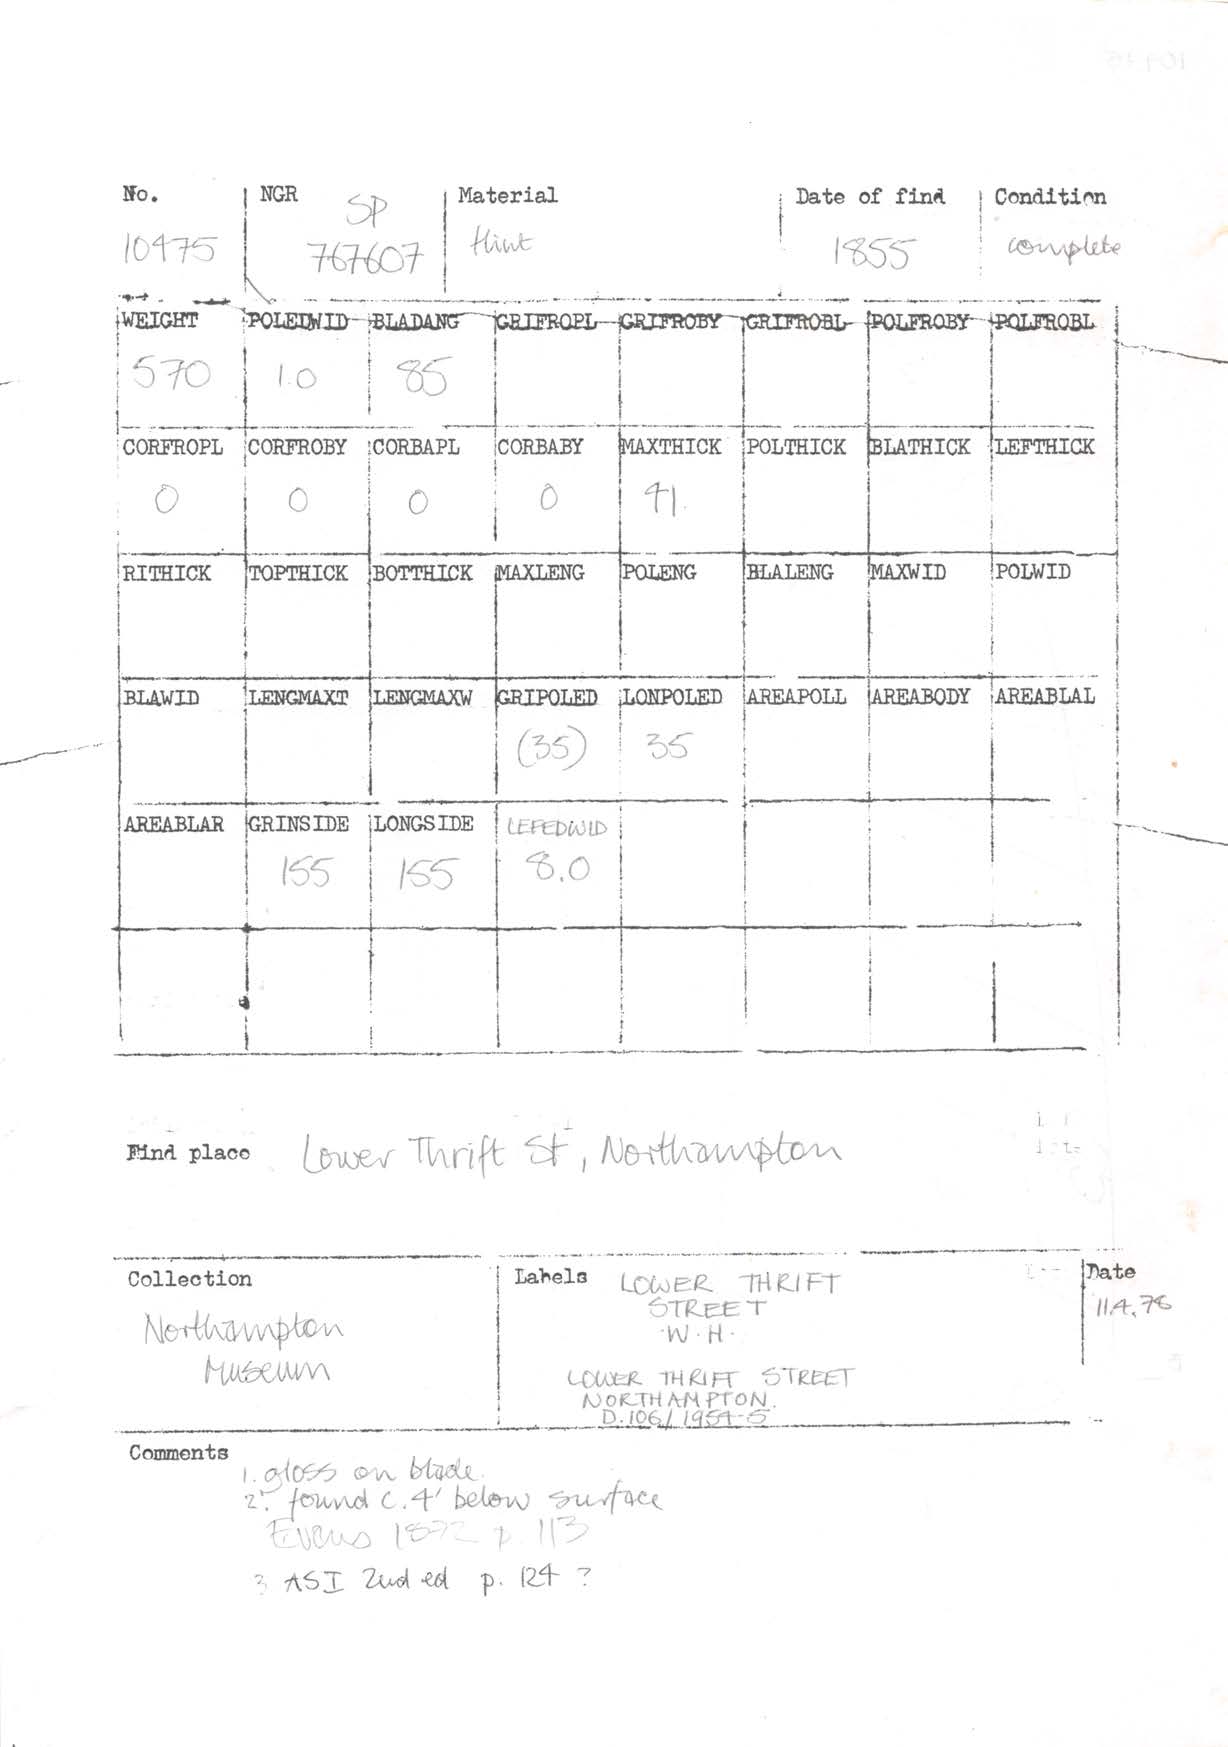 No. NGR Material Date of find Condition
10475 SP 767607 flint 1855 complete
WEIGHT POLEDWID BLADANG GRIFROPL GRIFROBY GRIFROBL POLFROBY POLFROBL
570 1.0 85
CORFROPL CORFROBY CORBAPL CORBABY MAXTHICK POLTHICK BLATHICK LEFTHICK
0 0 0 0 41
RITHICK TOPTHICK BOTTHICK MAXLENG POLENG BLALENG MAXWID POLWID
BLAWID LENGMAXT LENGMAXW GRIPOLED LONPOLED AREAPOLL AREABODY AREABLAL
(35) 35
AREABLAR GRINSIDE LONGSIDE LEFEDWID
155 155 8.0
Find place Lower Thrift St, Northampton
Collection Labels LOWER THRIFT Date
STREET 11.4.78
Northampton W.H.
Museum LOWER THRIFT STREET
NORTHAMPTON.
D.106/1954-5
Comments
1. gloss on blade.
2. found c. 4' below surface
Evans 1872 p. 113
3 ASI 2nd ed p. 124 ?